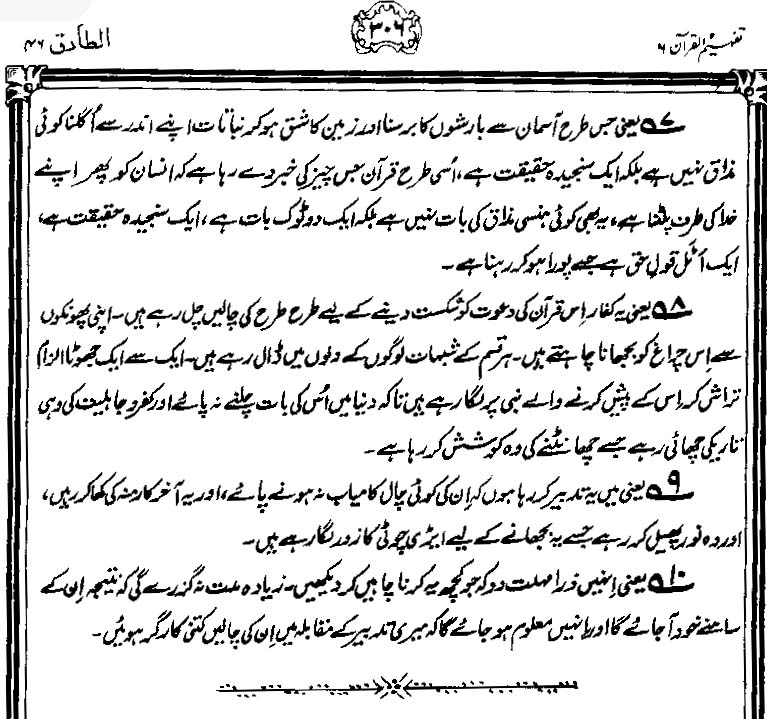 تفہیم القرآن ۶
۳۰۶
الطارق ۸۶
۷ یعنی جس طرح آسمان سے بارشوں کا برسنا اور زمین کا شق ہو کر نباتات اپنے اندر سے اُگلنا کوئی
مذاق نہیں ہے بلکہ ایک سنجیدہ حقیقت ہے، اُسی طرح قرآن جس چیز کی خبر دے رہا ہے کہ انسان کو پھر اپنے
خدا کی طرف پلٹنا ہے، یہ بھی کوئی ہنسی مذاق کی بات نہیں ہے بلکہ ایک دو ٹوک بات ہے، ایک سنجیدہ حقیقت ہے،
ایک اٹل قولِ حق ہے جسے پورا ہو کر رہنا ہے۔
۸ یعنی یہ کفار اِس قرآن کی دعوت کو شکست دینے کے لیے طرح طرح کی چالیں چل رہے ہیں۔ اپنی پھونکوں
سے اِس چراغ کو بجھانا چاہتے ہیں۔ ہر قسم کے شبہات لوگوں کے دلوں میں ڈال رہے ہیں۔ ایک سے ایک جھوٹا الزام
تراش کر اِس کے پیش کرنے والے نبی پر لگا رہے ہیں تاکہ دنیا میں اُس کی بات چلنے نہ پائے اور کفر و جاہلیت کی وہی
تاریکی چھائی رہے جسے چھانٹنے کی وہ کوشش کر رہا ہے۔
۹ یعنی میں یہ تدبیر کر رہا ہوں کہ اِن کی کوئی چال کامیاب نہ ہونے پائے، اور یہ آخر کار منہ کی کھا کر رہیں،
اور وہ نور پھیل کر رہے جسے یہ بجھانے کے لیے ایڑی چوٹی کا زور لگا رہے ہیں۔
۱۰ یعنی اِنہیں ذرا مہلت دو کہ جو کچھ یہ کرنا چاہیں کر دیکھیں۔ زیادہ مدت نہ گذرے گی کہ نتیجہ اِن کے
سامنے خود آ جائے گا اور اِنہیں معلوم ہو جائے گا کہ میری تدبیر کے مقابلہ میں اِن کی چالیں کتنی کارگر ہوئیں۔